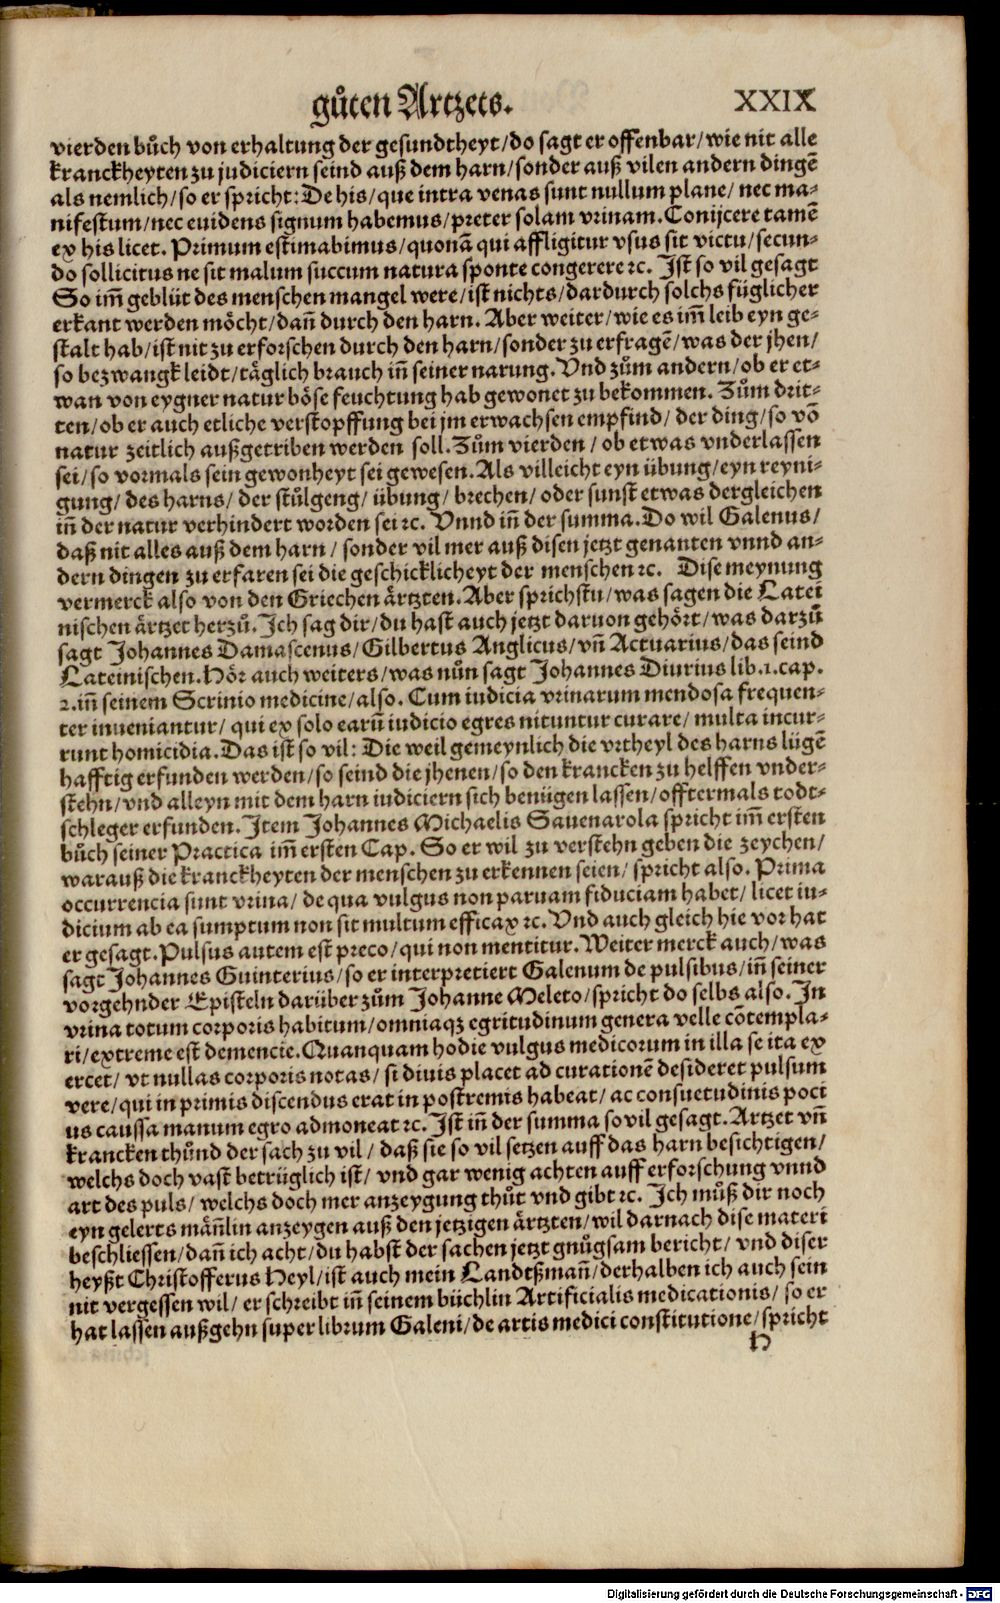 gůten Artzets. XXIX
vierden bůch von erhaltung der gesundtheyt/do sagt er offenbar/wie nit alle
kranckheyten zu judiciern seind auß dem harn/sonder auß vilen andern dingē
als nemlich/so er spricht: De his/que intra venas sunt nullum plane/ nec ma-
nifestum/nec euidens signum habemus/preter solam vrinam. Conijcere tamē
ex his licet. Primum estimabimus/quonā qui affligitur vsus sit victu/secun-
do sollicitus ne sit malum succum natura sponte congerere ꝛc. Ist so vil gesagt
So im̄ geblüt des menschen mangel were/ist nichts/dardurch solchs füglicher
erkant werden möcht/dañ durch den harn. Aber weiter/wie es im̄ leib eyn ge-
stalt hab/ist nit zu erforschen durch den harn/sonder zu erfragē/was der jhen/
so bezwangk leidt/täglich brauch iñ seiner narung. Vnd zům andern/ob er et-
wan von eygner natur böse feuchtung hab gewonet zu bekommen. Zům drit-
ten/ob er auch etliche verstopffung bei jm erwachsen empfind/ der ding/so vō
natur zeitlich außgetriben werden soll. Zům vierden/ ob etwas vnderlassen
sei/so vormals sein gewonheyt sei gewesen. Als villeicht eyn übung/eyn reyni-
gung/ des harns/ der stůlgeng/ übung/ brechen/ oder sunst etwas dergleichen
iñ der natur verhindert worden sei ꝛc. Vnnd iñ der summa. Do wil Galenus/
daß nit alles auß dem harn/ sonder vil mer auß disen jetzt genanten vnnd an-
dern dingen zu erfaren sei die geschicklicheyt der menschen ꝛc. Dise meynung
vermerck also von den Griechen ärtzten. Aber sprichstu/was sagen die Latei
nischen ärtzet herzů. Ich sag dir/du hast auch jetzt daruon gehört/was darzů
sagt Johannes Damascenus/Gilbertus Anglicus/vñ Actuarius/das seind
Lateinischen. Hör auch weiters/was nůn sagt Johannes Diurius lib.1.cap.
2.iñ seinem Scrinio medicine/also. Cum iudicia vrinarum mendosa frequen-
ter inueniantur/ qui ex solo earū iudicio egres nituntur curare/ multa incur-
runt homicidia. Das ist so vil: Die weil gemeynlich die vrtheyl des harns lügē
hafftig erfunden werden/so seind die jhenen/so den krancken zu helffen vnder-
stehn/vnd alleyn mit dem harn iudiciern sich benügen lassen/offtermals todt-
schleger erfunden. Item Johannes Michaelis Sauenarola spricht im̄ ersten
bůch seiner Practica im̄ ersten Cap. So er wil zu verstehn geben die zeychen/
warauß die kranckheyten der menschen zu erkennen seien/ spricht also. Prima
occurrencia sunt vrina/ de qua vulgus non paruam fiduciam habet/ licet iu-
dicium ab ea sumptum non sit multum efficax ꝛc. Vnd auch gleich hie vor hat
er gesagt. Pulsus autem est preco/qui non mentitur. Weiter merck auch/was
sagt Johannes Guinterius/so er interpretiert Galenum de pulsibus/iñ seiner
vorgehnder Episteln darüber zům Johanne Meleto/spricht do selbs also. In
vrina totum corporis habitum/omniaqꝫ egritudinum genera velle cōtempla-
ri/extreme est demencie. Quanquam hodie vulgus medicorum in illa se ita ex
ercet/ vt nullas corporis notas/ si diuis placet ad curationē desideret pulsum
vere/qui in primis discendus erat in postremis habeat/ ac consuetudinis poci
us caussa manum egro admoneat ꝛc. Ist iñ der summa so vil gesagt. Artzet vñ
krancken thůnd der sach zu vil/ daß sie so vil setzen auff das harn besichtigen/
welchs doch vast betrüglich ist/ vnd gar wenig achten auff erforschung vnnd
art des puls/ welchs doch mer anzeygung thůt vnd gibt ꝛc. Ich můß dir noch
eyn gelerts män̄lin anzeygen auß den jetzigen ärtzten/wil darnach dise materi
beschliessen/dañ ich acht/du habst der sachen jetzt gnůgsam bericht/ vnd diser
heyßt Christofferus Heyl/ist auch mein Landtßmañ/derhalben ich auch sein
nit vergessen wil/ er schreibt iñ seinem büchlin Artificialis medicationis/ so er
hat lassen außgehn super librum Galeni/de artis medici constitutione/spricht
H
Digitalisierung gefördert durch die Deutsche Forschungsgemeinschaft - DFG